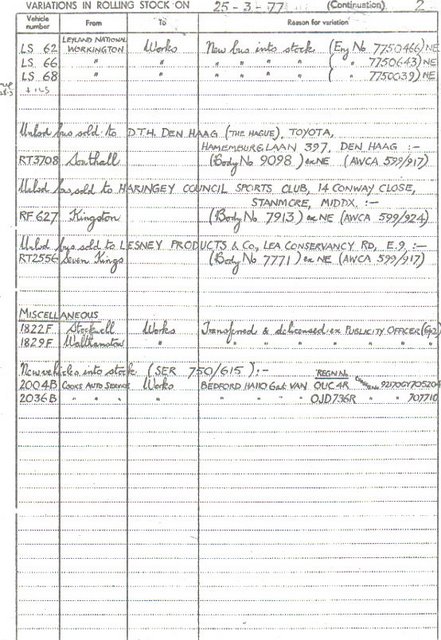 VARIATIONS IN ROLLING STOCK ON 25-3-77 (Continuation) 2
Vehicle number From To Reason for variation
LS 62 LEYLAND NATIONAL WORKINGTON Works New bus into stock (Eng No 7750466) NE
LS 66 " " " " " " ( " " 7750643) NE
LS 68 " " " " " " ( " " 7750039) NE
Unlsd bus sold to D.T.H. DEN HAAG (THE HAGUE), TOYOTA,
HAMEMBURGLAAN 397, DEN HAAG :-
RT3708 Southall (Body No 9098) ex NE (AWCA 599/917)
Unlsd bus sold to HARINGEY COUNCIL SPORTS CLUB, 14 CONWAY CLOSE,
STANMORE, MIDDX. :-
RF 627 Kingston (Body No 7913) ex NE (AWCA 599/924)
Unlsd bus sold to LESNEY PRODUCTS & Co, LEA CONSERVANCY RD, E.9. :-
RT2556 Seven Kings (Body No 7771) ex NE (AWCA 599/917)
MISCELLANEOUS
1822F Stockwell Works Transferred & delicensed ex PUBLICITY OFFICER (Gp2)
1829F Walthamstow " " " " " "
New vehicles into stock (SER 750/615) :- REGN No.
2004B COOKS AUTO SERVICES Works BEDFORD HA110 6cwt VAN OUC 4R 9217OGY705204
2036B " " " " " " " " OJD736R " " 707710